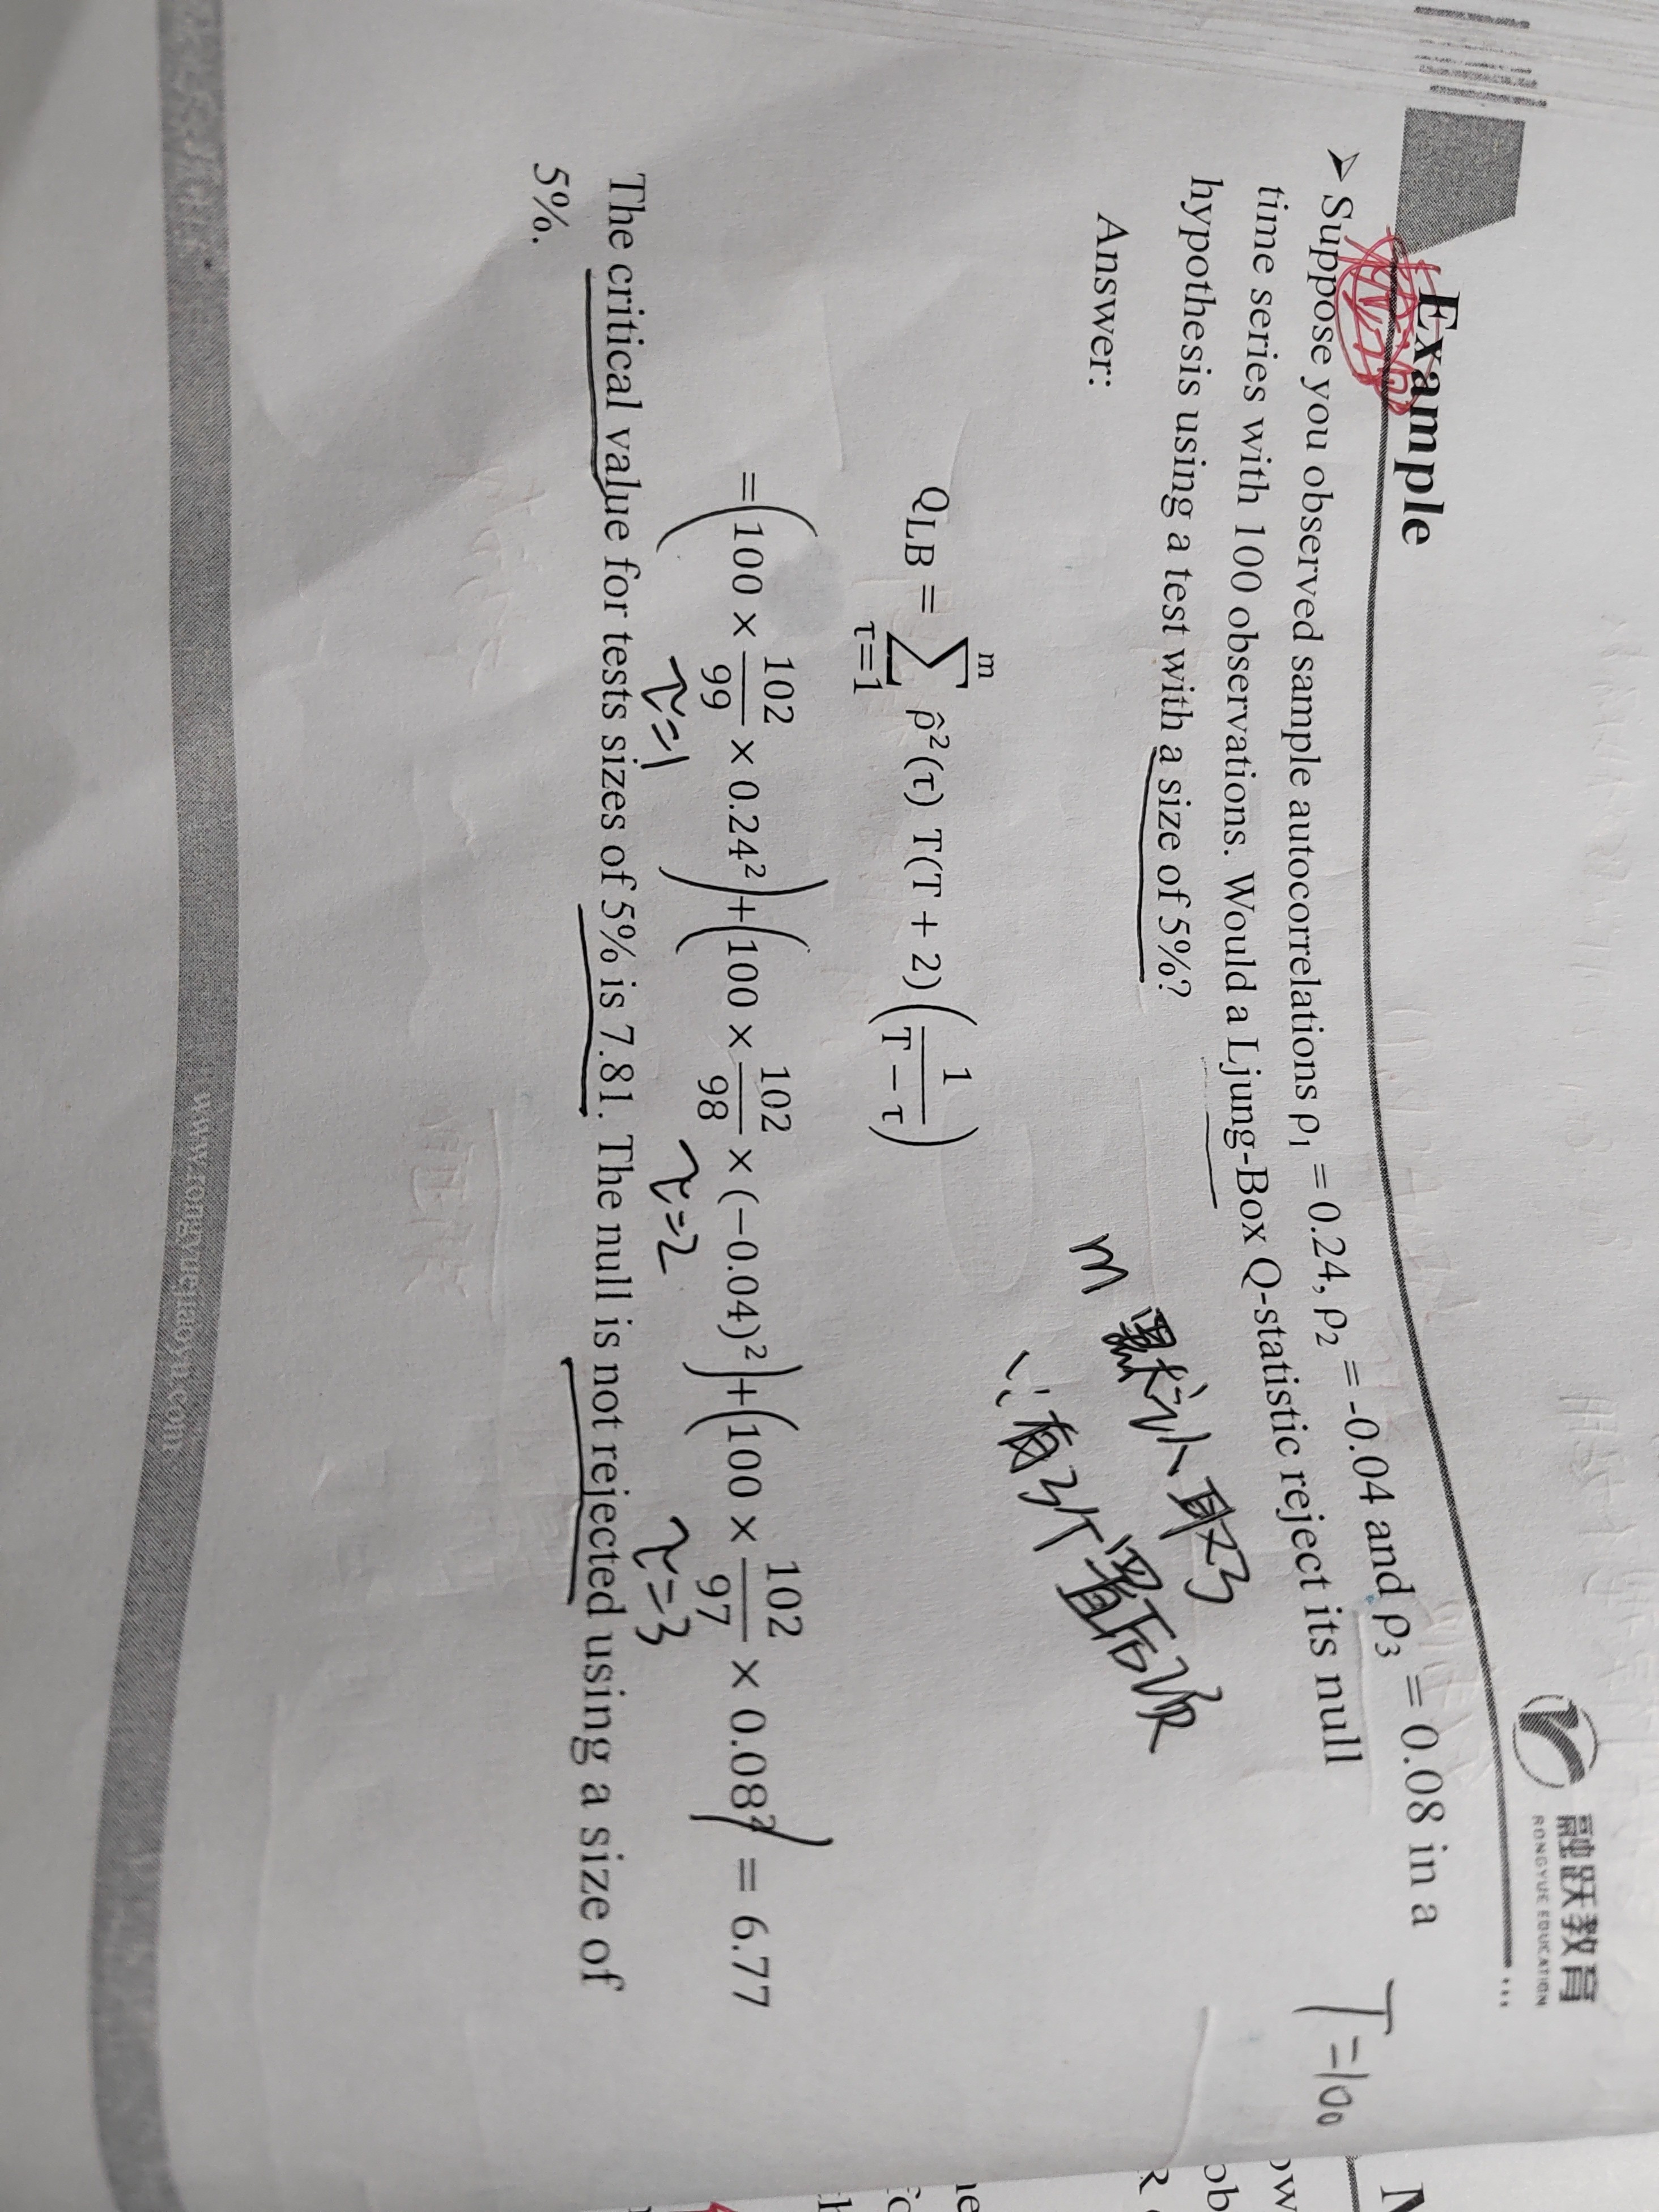 融跃教育
RONGYUE EDUCATION
Example
T=100
➢ Suppose you observed sample autocorrelations ρ₁ = 0.24, ρ₂ = -0.04 and ρ₃ = 0.08 in a
time series with 100 observations. Would a Ljung-Box Q-statistic reject its null
hypothesis using a test with a size of 5%?
Answer:
m 默认取3
∵有3个
Q_LB = ∑_{τ=1}^{m} ρ̂²(τ) T(T + 2)(1/(T − τ))
=(100 × 102/99 × 0.24²)+(100 × 102/98 × (−0.04)²)+(100 × 102/97 × 0.08²) = 6.77
τ=1 τ=2 τ=3
The critical value for tests sizes of 5% is 7.81. The null is not rejected using a size of
5%.
www.rongyuejiaoyu.com